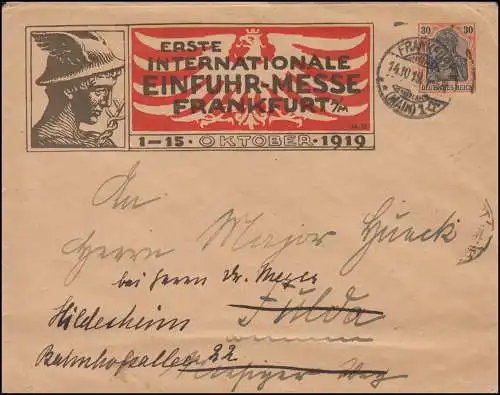 ERSTE
INTERNATIONALE
EINFUHR-MESSE
FRANKFURT a/M
1-15 · OKTOBER · 1919
30 30
DEUTSCHES REICH
FRANKFURT
14.10.19
(MAIN) 1
An
Herrn Major Hueck
bei Herrn Dr. Meyer
Hildesheim Fulda
Bahnhofsallee 22